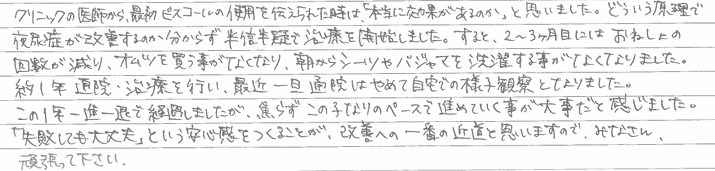 クリニックの医師から、最初ピスコールの使用を伝えられた時は、「本当に効果があるのか」と思いました。どういう原理で
夜尿症が改善するのか分からず半信半疑で治療を開始しました。すると、2〜3ヶ月目にはおねしょの
回数が減り、オムツを買う事がなくなり、朝からシーツやパジャマを洗濯する事がなくなりました。
約1年通院・治療を行い、最近一旦通院はやめて自宅での様子観察となりました。
この1年一進一退で経過しましたが、焦らずこの子なりのペースで進めていく事が大事だと感じました。
「失敗しても大丈夫」という安心感をつくることが、改善への一番の近道と思いますので、みなさん、
頑張って下さい。